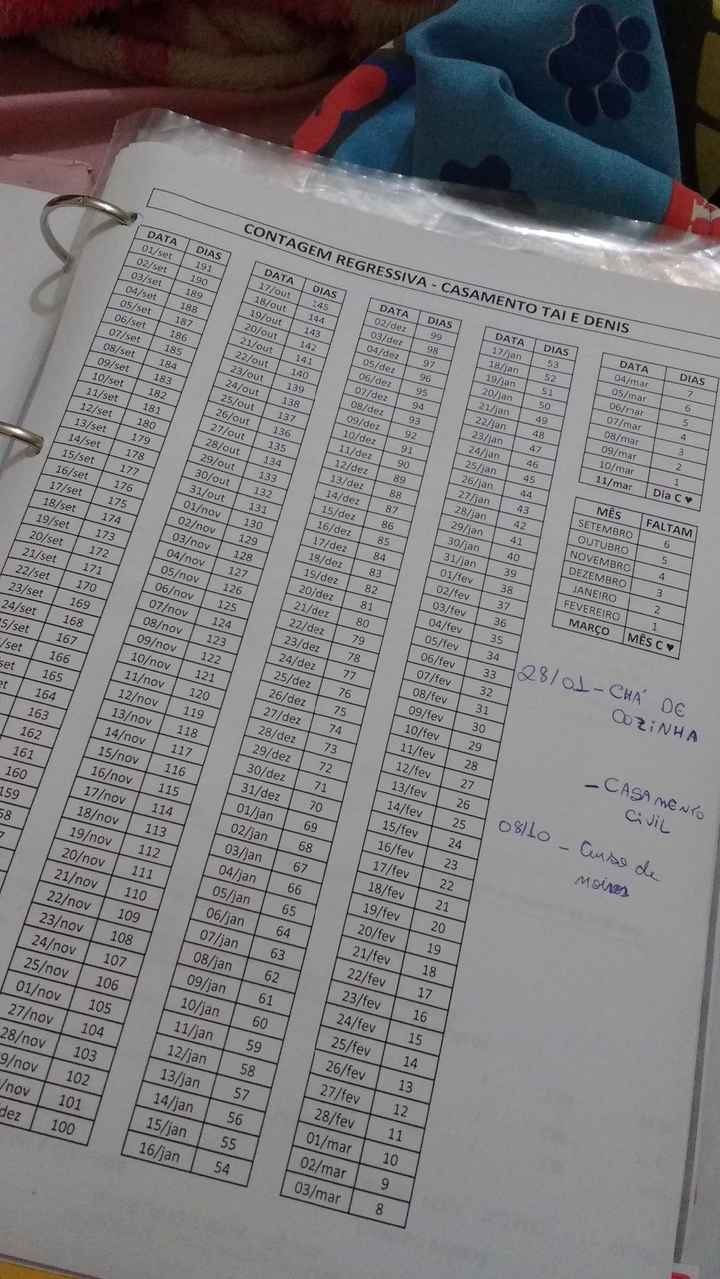 CONTAGEM REGRESSIVA - CASAMENTO TAI E DENIS
DATA DIAS
01/set 191
02/set 190
03/set 189
04/set 188
05/set 187
06/set 186
07/set 185
08/set 184
09/set 183
10/set 182
11/set 181
12/set 180
13/set 179
14/set 178
15/set 177
16/set 176
17/set 175
18/set 174
19/set 173
20/set 172
21/set 171
22/set 170
23/set 169
24/set 168
5/set 167
/set 166
set 165
et 164
163
162
161
160
159
58
7
DATA DIAS
17/out 145
18/out 144
19/out 143
20/out 142
21/out 141
22/out 140
23/out 139
24/out 138
25/out 137
26/out 136
27/out 135
28/out 134
29/out 133
30/out 132
31/out 131
01/nov 130
02/nov 129
03/nov 128
04/nov 127
05/nov 126
06/nov 125
07/nov 124
08/nov 123
09/nov 122
10/nov 121
11/nov 120
12/nov 119
13/nov 118
14/nov 117
15/nov 116
16/nov 115
17/nov 114
18/nov 113
19/nov 112
20/nov 111
21/nov 110
22/nov 109
23/nov 108
24/nov 107
25/nov 106
01/nov 105
27/nov 104
28/nov 103
9/nov 102
/nov 101
dez 100
DATA DIAS
02/dez 99
03/dez 98
04/dez 97
05/dez 96
06/dez 95
07/dez 94
08/dez 93
09/dez 92
10/dez 91
11/dez 90
12/dez 89
13/dez 88
14/dez 87
15/dez 86
16/dez 85
17/dez 84
18/dez 83
19/dez 82
20/dez 81
21/dez 80
22/dez 79
23/dez 78
24/dez 77
25/dez 76
26/dez 75
27/dez 74
28/dez 73
29/dez 72
30/dez 71
31/dez 70
01/jan 69
02/jan 68
03/jan 67
04/jan 66
05/jan 65
06/jan 64
07/jan 63
08/jan 62
09/jan 61
10/jan 60
11/jan 59
12/jan 58
13/jan 57
14/jan 56
15/jan 55
16/jan 54
DATA DIAS
17/jan 53
18/jan 52
19/jan 51
20/jan 50
21/jan 49
22/jan 48
23/jan 47
24/jan 46
25/jan 45
26/jan 44
27/jan 43
28/jan 42
29/jan 41
30/jan 40
31/jan 39
01/fev 38
02/fev 37
03/fev 36
04/fev 35
05/fev 34
06/fev 33
07/fev 32
08/fev 31
09/fev 30
10/fev 29
11/fev 28
12/fev 27
13/fev 26
14/fev 25
15/fev 24
16/fev 23
17/fev 22
18/fev 21
19/fev 20
20/fev 19
21/fev 18
22/fev 17
23/fev 16
24/fev 15
25/fev 14
26/fev 13
27/fev 12
28/fev 11
01/mar 10
02/mar 9
03/mar 8
DATA DIAS
04/mar 7
05/mar 6
06/mar 5
07/mar 4
08/mar 3
09/mar 2
10/mar 1
11/mar Dia C ♥
MÊS FALTAM
SETEMBRO 6
OUTUBRO 5
NOVEMBRO 4
DEZEMBRO 3
JANEIRO 2
FEVEREIRO 1
MARÇO MÊS C ♥
28/01 - CHÁ DE
COZINHA
- CASAMENTO
CIVIL
08/10 - Curso de
noivos